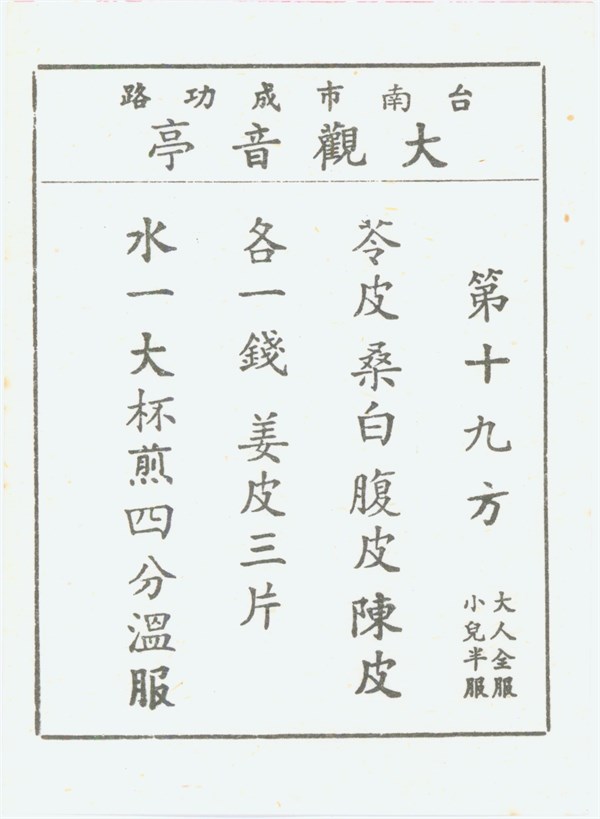 台南市成功路
大觀音亭
第十九方
大人全服
小兒半服
苓皮桑白腹皮陳皮
各一錢 姜皮三片
水一大杯煎四分溫服